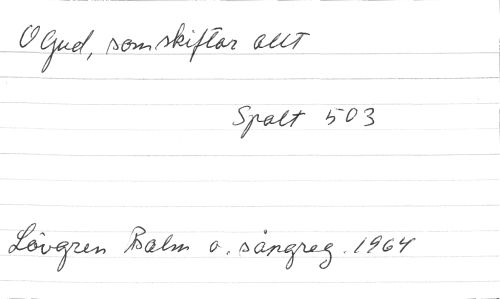 O Gud, som skiftar allt
Spalt 503
Lövgren Psalm o. sångreg. 1964